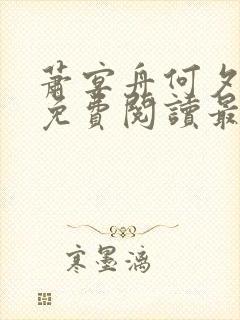 蕭宴舟何夕
免費閱讀最
寒墨漓